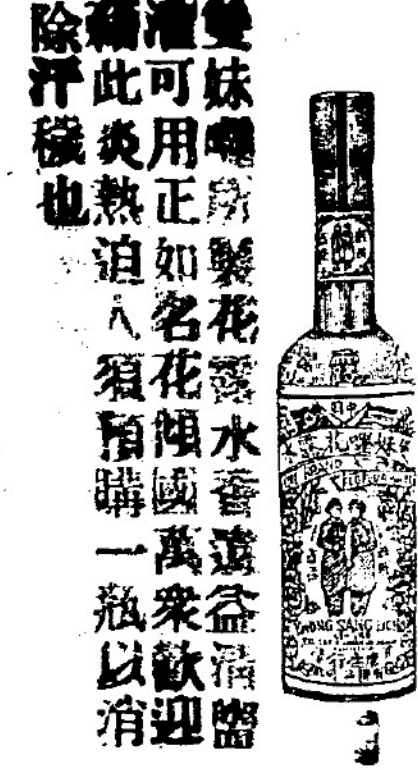 雙妹嘜所製花露水香遠益清盥
濯可用正如名花傾國萬衆歡迎
此炎熱迫人須預購一瓶以消
除汗穢也
BRAND
KWONG SANG HONG